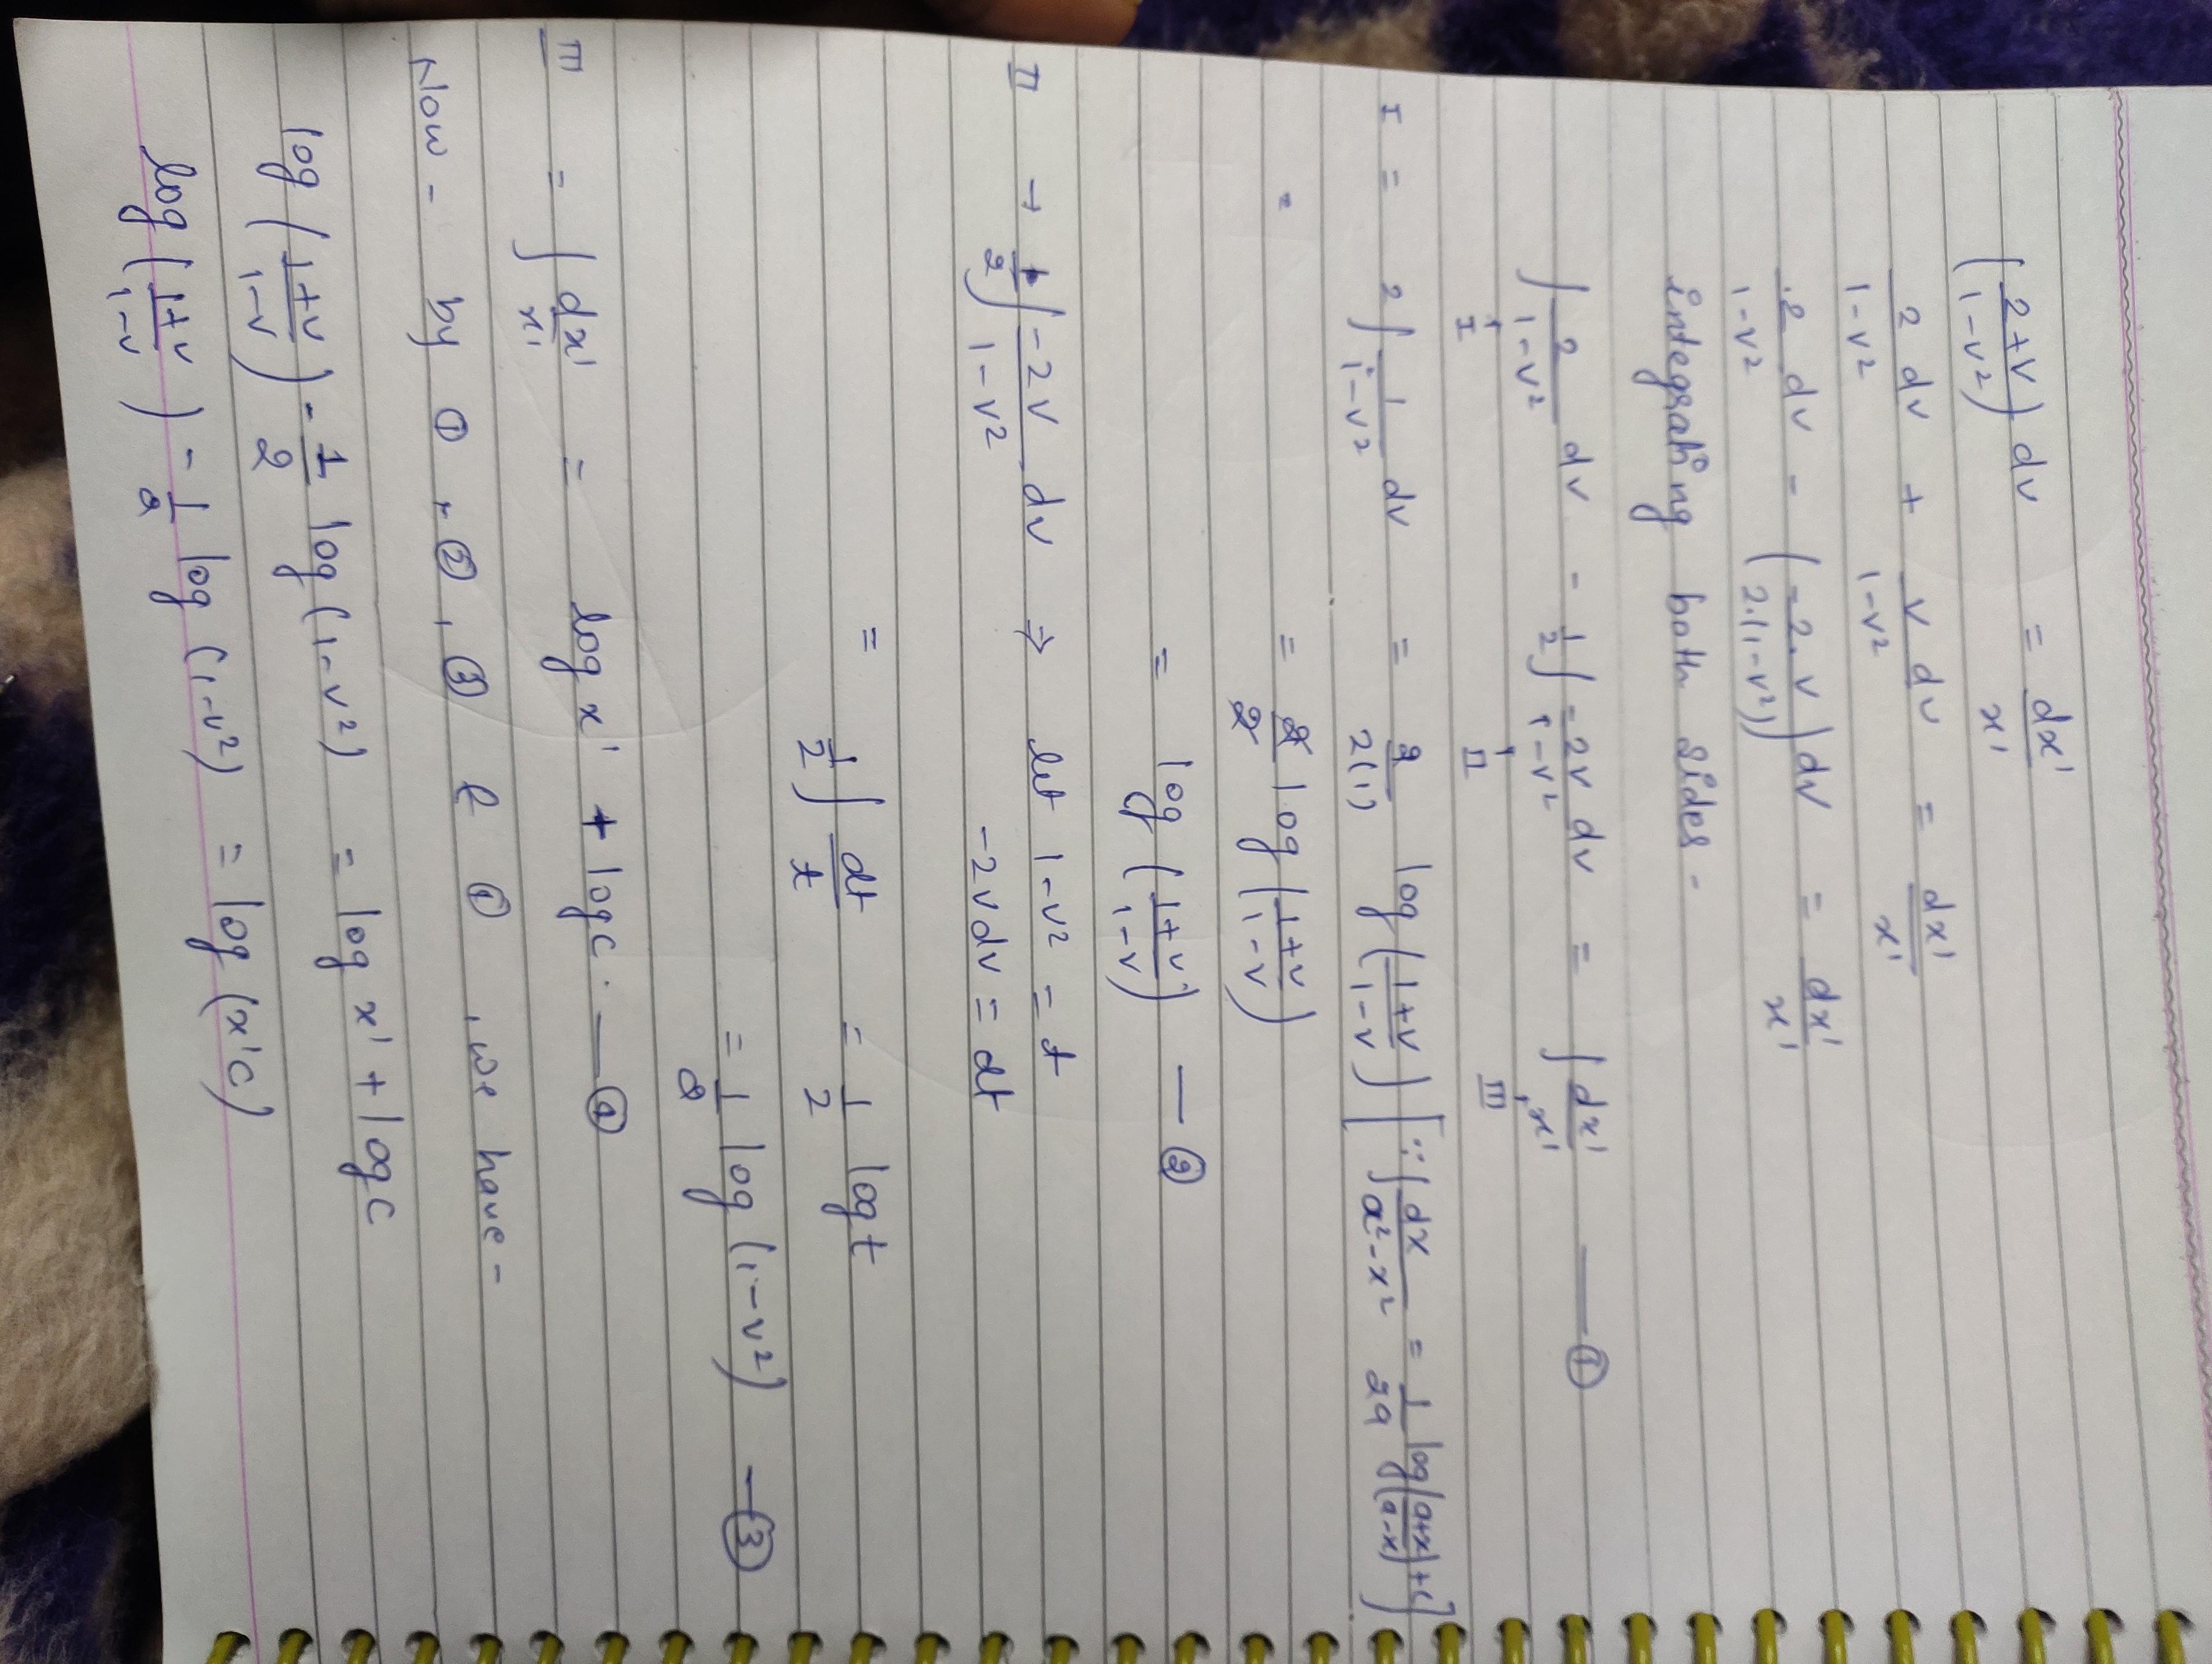 (2+v / 1-v²) dv = dx' / x'
2 / 1-v² dv + v dv / 1-v² = dx' / x'
2 / 1-v² dv - (-2.v / 2.(1-v²)) dv = dx' / x'
integrating both sides -
∫ 2 / 1-v² dv - 1/2 ∫ -2v / 1-v² dv = ∫ dx' / x' — ①
I II III
I = 2 ∫ 1 / 1-v² dv = 2 / 2(1) log (1+v / 1-v) [∵ ∫ dx / a²-x² = 1 / 2a log (a+x / a-x) + c]
= = 2/2 log (1+v / 1-v)
= log (1+v / 1-v) — ②
II → 1/2 ∫ -2v / 1-v² dv ⇒ let 1-v² = t
-2vdv = dt
= 1/2 ∫ dt / t = 1/2 log t
= 1/2 log (1-v²) — ③
III = ∫ dx' / x' = log x' + log c. — ④
Now - by ① , ② , ③ & ④ , we have -
log (1+v / 1-v) - 1/2 log (1-v²) = log x' + log c
log (1+v / 1-v) - 1/2 log (1-v²) = log (x'c)